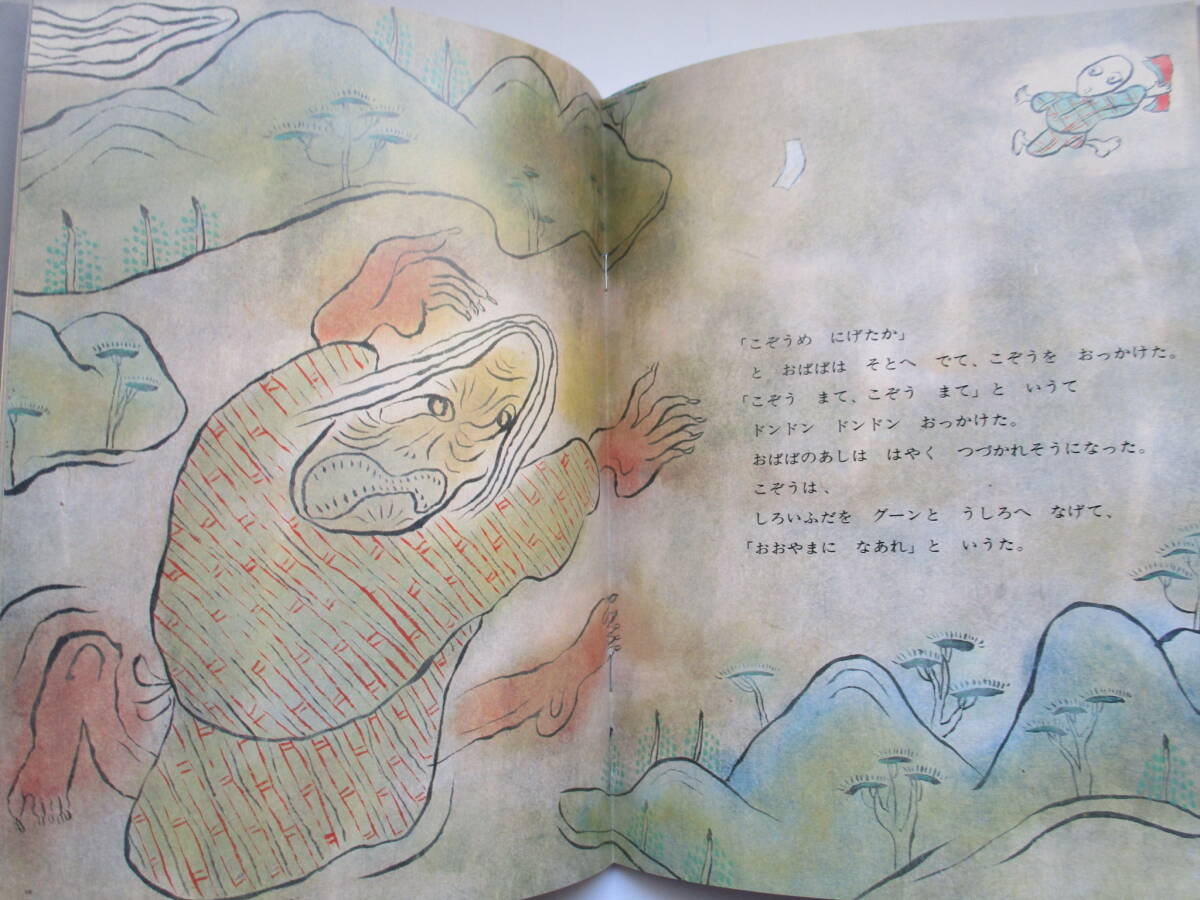 「こぞうめ　にげたか」
と　おばばは　そとへ　でて、こぞうを　おっかけた。
「こぞう　まて、こぞう　まて」と　いうて
ドンドン　ドンドン　おっかけた。
おばばのあしは　はやく　つづかれそうになった。
こぞうは、
しろいふだを　グーンと　うしろへ　なげて、
「おおやまに　なあれ」と　いうた。